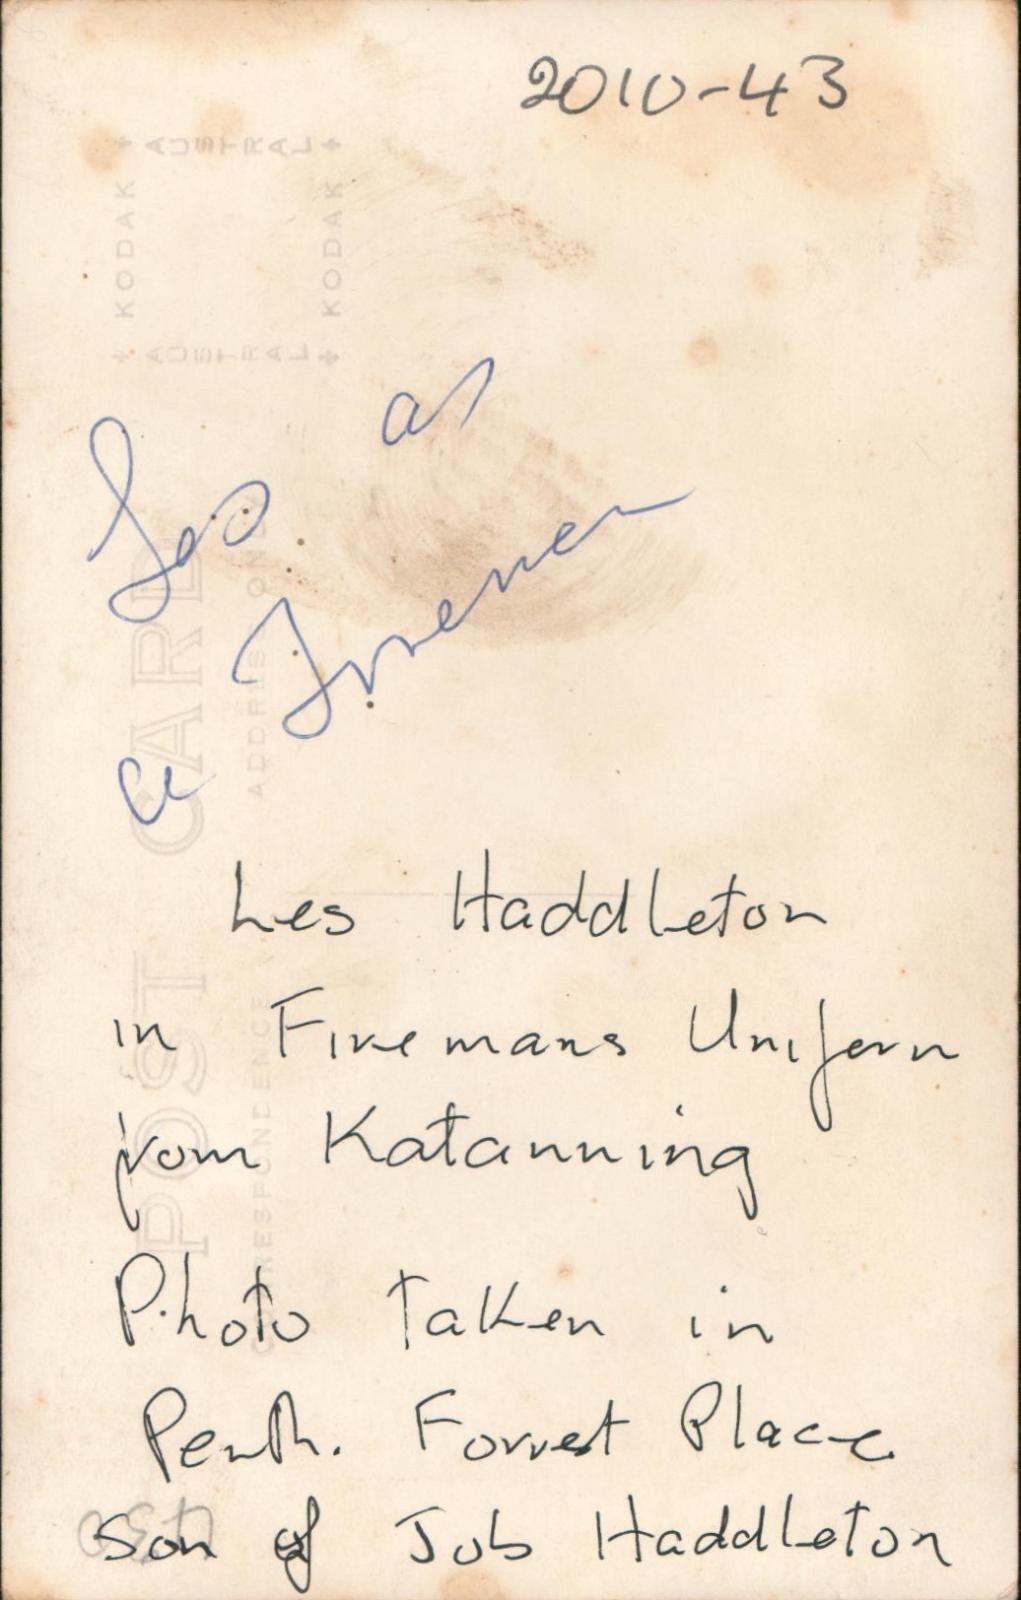 2010-43
+ AUSTRAL +
KODAK
KODAK
+ AUSTRAL +
POST CARD
CORRESPONDENCE
ADDRESS ONLY
Les as
a Fireman
Les Haddleton
in Firemans Uniform
from Katanning
Photo taken in
Perth. Forrest Place
Son of Job Haddleton